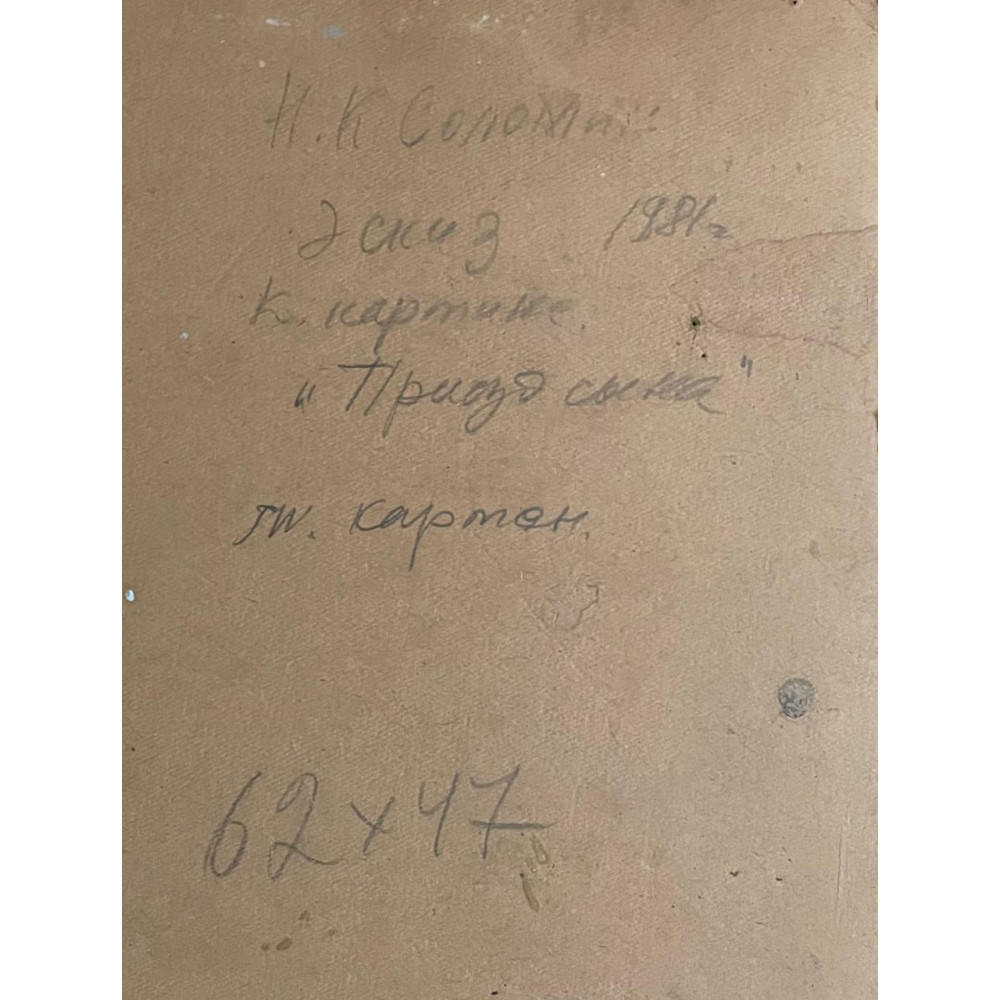 Н.К Соломин
Эскиз 1981г
К. картине
„Приезд сына"
тм. картон.
62х47